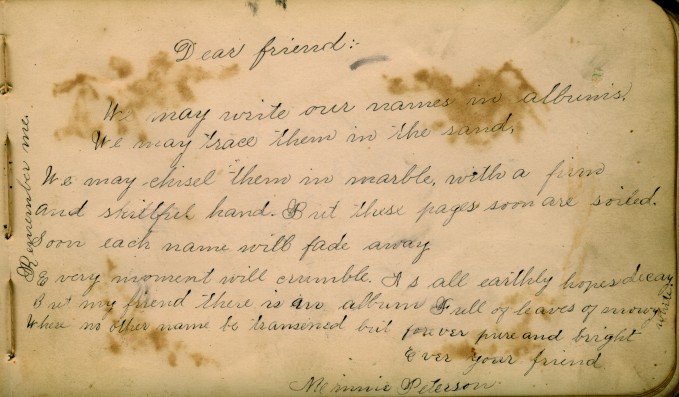 Dear friend:-
We may write our names in albums,
We may trace them in the sand,
We may chisel them in marble, with a firm
And skillful hand. But these pages soon are soiled.
Soon each name will fade away
Every moment will crumble. As all earthly hopes decay
But my friend there is an album Full of leaves of snowy white
Where no other name be transened but forever pure and bright
Ever your friend
Minnie Peterson.
Remember me.